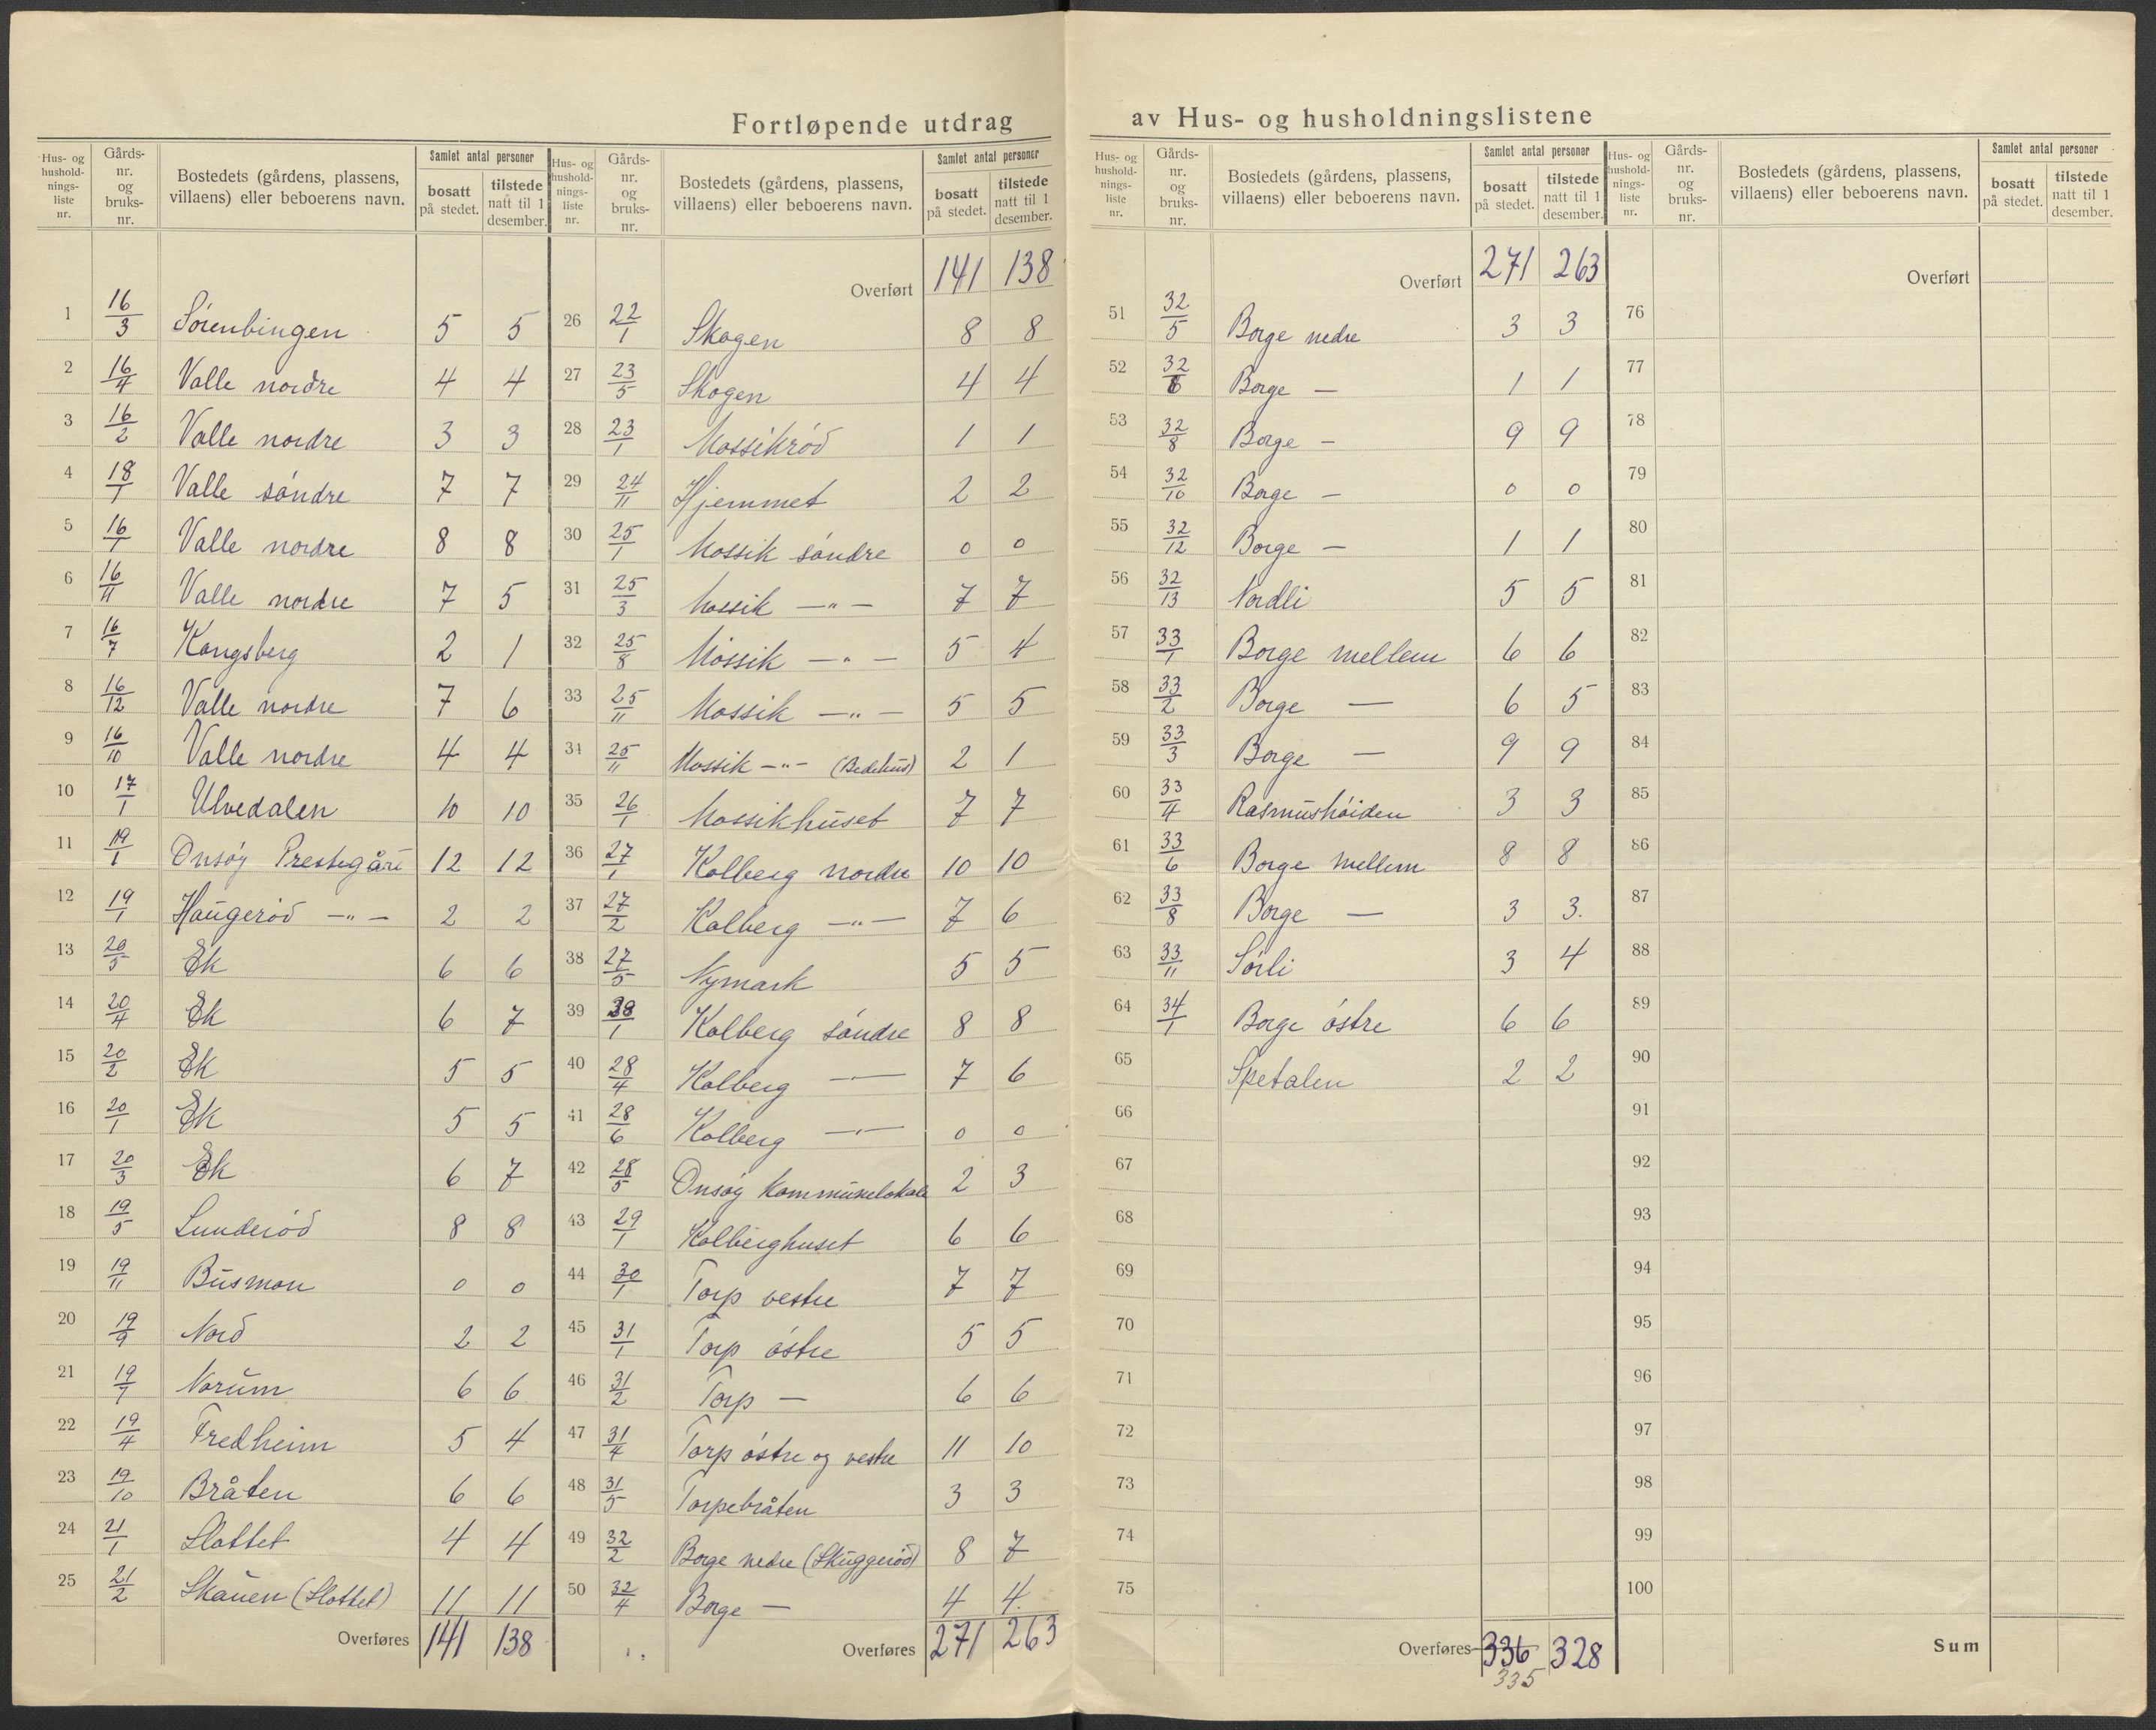 Fortløpende utdrag av Hus- og husholdningslistene
Hus- og hushold-nings-liste nr. | Gårds-nr. og bruks-nr. | Bostedets (gårdens, plassens, villaens) eller beboerens navn. | Samlet antal personer: bosatt på stedet. | tilstede natt til 1 desember.
1 16/3 Sörenbingen 5 5
2 16/4 Valle nordre 4 4
3 16/2 Valle nordre 3 3
4 18/1 Valle söndre 7 7
5 16/1 Valle nordre 8 8
6 16/11 Valle nordre 7 5
7 16/7 Kongsberg 2 1
8 16/12 Valle nordre 7 6
9 16/10 Valle nordre 4 4
10 17/1 Ulvedalen 10 10
11 19/1 Onsöy Prestegård 12 12
12 19/1 Haugeröd —"— 2 2
13 20/5 Ek 6 6
14 20/4 Ek 6 7
15 20/2 Ek 5 5
16 20/1 Ek 5 5
17 20/3 Ek 6 7
18 19/5 Lunderöd 8 8
19 19/11 Busmon 0 0
20 19/9 Nord 2 2
21 19/7 Norum 6 6
22 19/4 Fredheim 5 4
23 19/10 Bråten 6 6
24 21/1 Slottet 4 4
25 21/2 Skauen (Slottet) 11 11
Overføres 141 138
Hus- og hushold-nings-liste nr. | Gårds-nr. og bruks-nr. | Bostedets (gårdens, plassens, villaens) eller beboerens navn. | Samlet antal personer: bosatt på stedet. | tilstede natt til 1 desember.
Overført 141 138
26 22/1 Skogen 8 8
27 23/5 Skogen 4 4
28 23/1 Mossikröd 1 1
29 24/11 Hjemmet 2 2
30 25/1 Mossik söndre 0 0
31 25/3 Mossik —"— 7 7
32 25/8 Mossik —"— 5 4
33 25/11 Mossik —"— 5 5
34 25/11 Mossik —"— (Bedehus) 2 1
35 26/1 Mossikhuset 7 7
36 27/1 Kolberg nordre 10 10
37 27/2 Kolberg —"— 7 6
38 27/5 Nymark 5 5
39 28/1 Kolberg söndre 8 8
40 28/4 Kolberg —"— 7 6
41 28/6 Kolberg —"— 0 0
42 28/5 Onsöy Kommunelokale 2 3
43 29/1 Kolberghuset 6 6
44 30/1 Torp vestre 7 7
45 31/1 Torp östre 5 5
46 31/2 Torp — 6 6
47 31/4 Torp östre og vestre 11 10
48 31/5 Torpebråten 3 3
49 32/2 Borge nedre (Skuggeröd) 8 7
50 32/4 Borge — 4 4
Overføres 271 263
Hus- og hushold-nings-liste nr. | Gårds-nr. og bruks-nr. | Bostedets (gårdens, plassens, villaens) eller beboerens navn. | Samlet antal personer: bosatt på stedet. | tilstede natt til 1 desember.
Overført 271 263
51 32/5 Borge nedre 3 3
52 32/6 Borge — 1 1
53 32/8 Borge — 9 9
54 32/10 Borge — 0 0
55 32/12 Borge — 1 1
56 32/13 Nordli 5 5
57 33/1 Borge mellem 6 6
58 33/2 Borge — 6 5
59 33/3 Borge — 9 9
60 33/4 Rasmushöiden 3 3
61 33/6 Borge mellem 8 8
62 33/8 Borge — 3 3.
63 33/11 Sörli 3 4
64 34/1 Borge östre 6 6
65 Spetalen 2 2
66
67
68
69
70
71
72
73
74
75
Overføres 336 328
335
Hus- og hushold-nings-liste nr. | Gårds-nr. og bruks-nr. | Bostedets (gårdens, plassens, villaens) eller beboerens navn. | Samlet antal personer: bosatt på stedet. | tilstede natt til 1 desember.
Overført
76
77
78
79
80
81
82
83
84
85
86
87
88
89
90
91
92
93
94
95
96
97
98
99
100
Sum